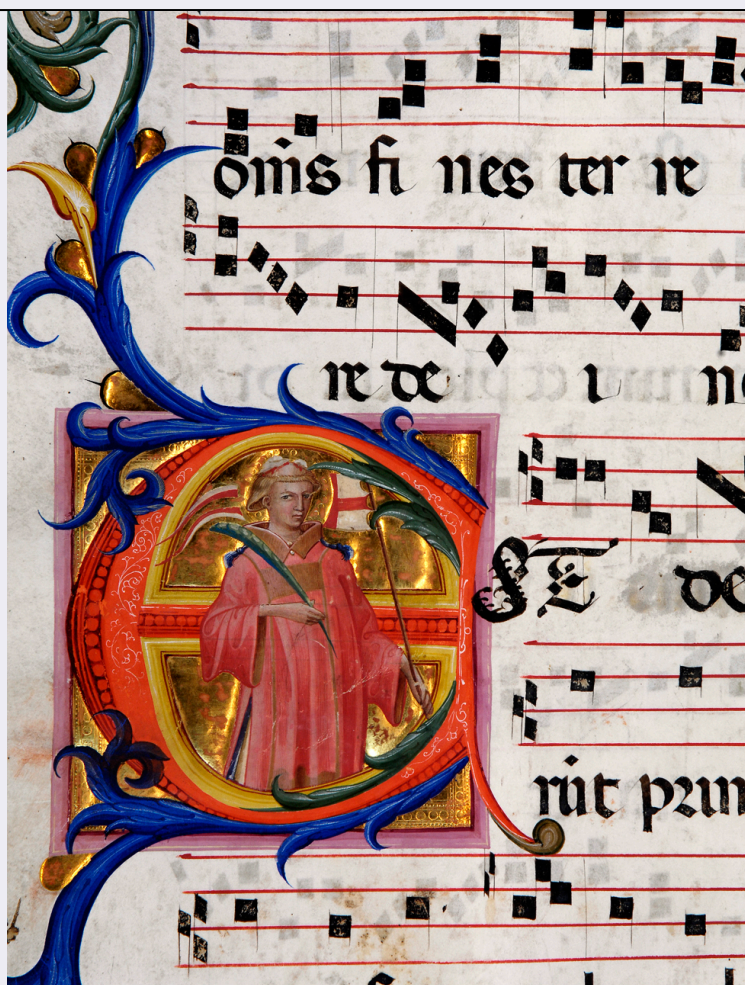 om̄s fi nes ter re
re de i n
E ST de
rūt prin